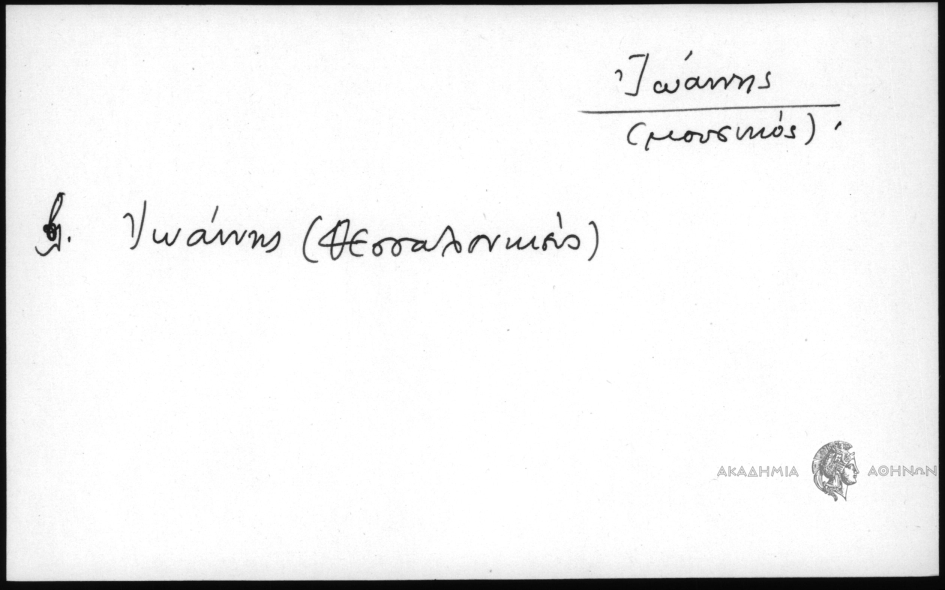 Ἰωάννης
(μουσικός).
βλ. Ἰωάννης (Θεσσαλονικεύς)
ΑΚΑΔΗΜΙΑ ΑΘΗΝΩΝ